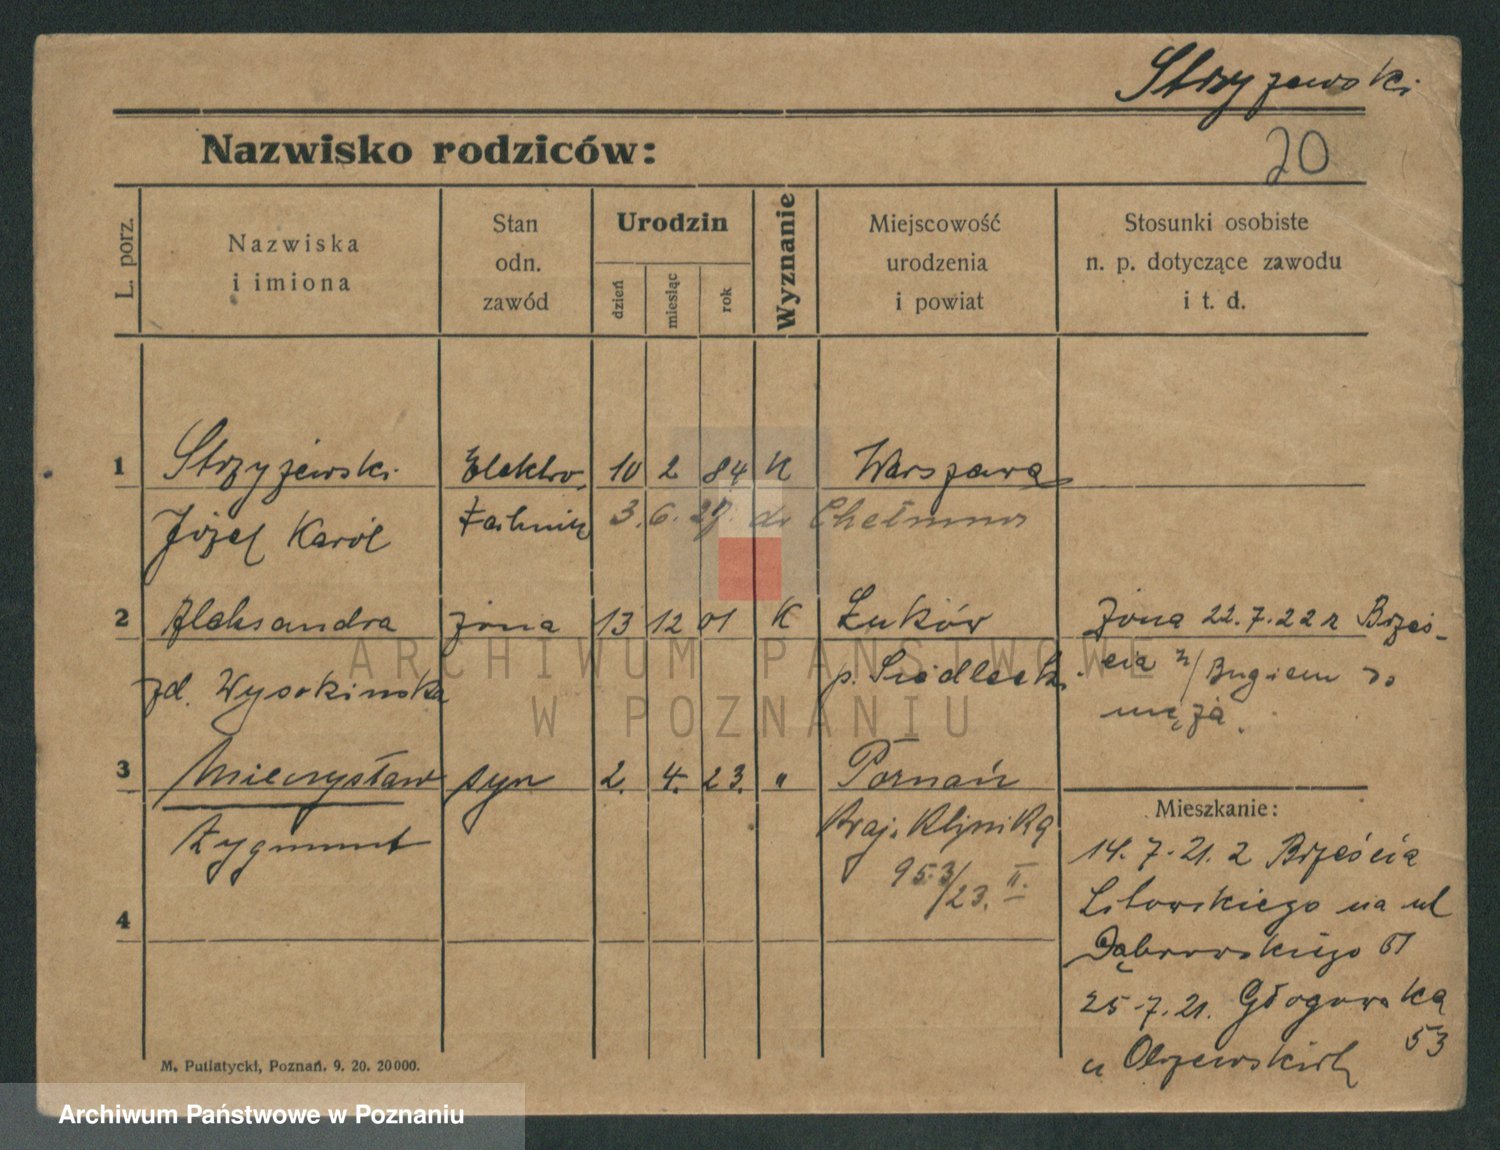 Strzyżewski
20
Nazwisko rodziców:
L. porz.
Nazwiska
i imiona
Stan
odn.
zawód
Urodzin
dzień
miesiąc
rok
Wyznanie
Miejscowość
urodzenia
i powiat
Stosunki osobiste
n. p. dotyczące zawodu
i t. d.
1 Strzyżewski Elektro 10 2 84 K Warszawa
Józef Karól technik 3. 6. 27. do Chełmna
2 Aleksandra żona 13 12 01 K Łuków Żona 22.7.22 z Brześ-
zd. Wysokinska p. Siedlecki cia n/Bugiem do
męża.
ARCHIWUM PAŃSTWOWE
W POZNANIU
3 Mieczysław syn 2. 4. 23. " Poznań
Zygmunt Kraj. Klinika
953/23. II.
4
Mieszkanie:
14. 7. 21. z Brześcia
Litowskiego na ul
Dąbrowskiego 61
25.7.21. Głogowska
53
u
M. Putiatycki, Poznań. 9. 20. 20000.
Archiwum Państwowe w Poznaniu